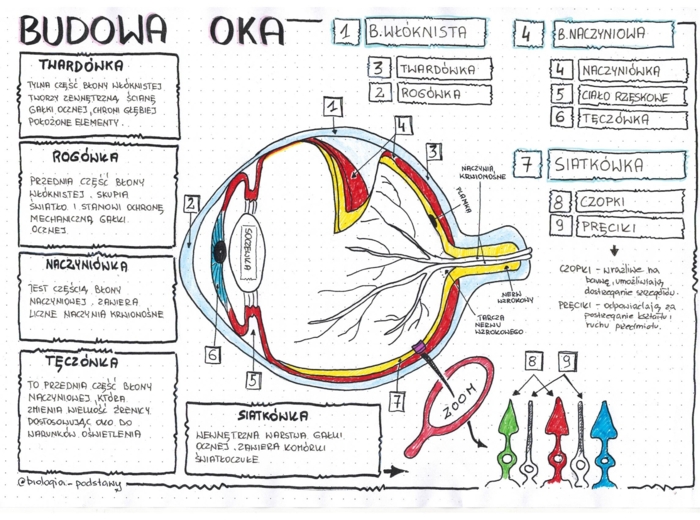 BUDOWA OKA
TWARDÓWKA
TYLNA CZĘŚĆ BŁONY WŁÓKNISTEJ
TWORZY ZEWNĘTRZNĄ ŚCIANĘ
GAŁKI OCZNEJ, CHRONI GŁĘBIEJ
POŁOŻONE ELEMENTY.
ROGÓWKA
PRZEDNIA CZĘŚĆ BŁONY
WŁÓKNISTEJ. SKUPIA
ŚWIATŁO I STANOWI OCHRONĘ
MECHANICZNĄ GAŁKI
OCZNEJ
NACZYNIÓWKA
JEST CZĘŚCIĄ BŁONY
NACZYNIOWEJ. ZAWIERA
LICZNE NACZYNIA KRWIONOŚNE
TĘCZÓWKA
TO PRZEDNIA CZĘŚĆ BŁONY
NACZYNIOWEJ, KTÓRA
ZMIENIA WIELKOŚĆ ŹRENICY
DOSTOSOWUJĄC OKO DO
WARUNKÓW OŚWIETLENIA
@biologia_podstawy
SIATKÓWKA
WEWNĘTRZNA WARSTWA GAŁKI
OCZNEJ. ZAWIERA KOMÓRKI
ŚWIATŁOCZUŁE
1 B.WŁÓKNISTA
3 TWARDÓWKA
2 ROGÓWKA
4 B.NACZYNIOWA
4 NACZYNIÓWKA
5 CIAŁO RZĘSKOWE
6 TĘCZÓWKA
7 SIATKÓWKA
8 CZOPKI
9 PRĘCIKI
CZOPKI - wrażliwe na
barwę, umożliwiają
dostrzeganie szczegółów.
PRĘCIKI - odpowiadają za
postrzeganie kształtu i
ruchu przedmiotu.
1
4
3
2
NACZYNIA
KRWIONOŚNE
PLAMKA
SOCZEWKA
NERW
WZROKOWY
TARCZA
NERWU
WZROKOWEGO
6
5
7
ZOOM
8 9